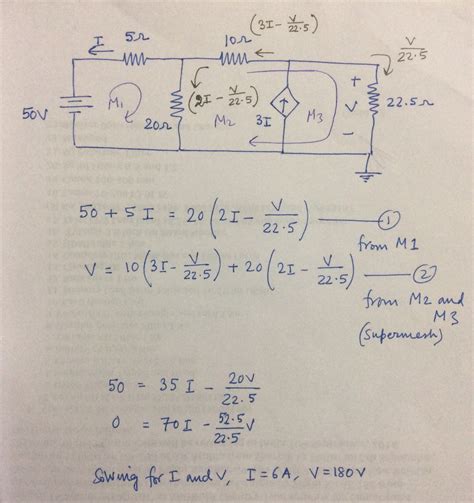 (3I - V/22.5)
I 5Ω 10Ω V/22.5
50V M1 20Ω (2I - V/22.5) M2 3I M3 + V - 22.5Ω
50 + 5I = 20(2I - V/22.5) ——— ①
from M1
V = 10(3I - V/22.5) + 20(2I - V/22.5) ——— ②
from M2 and
M3
(Supermesh)
50 = 35I - 20V/22.5
0 = 70I - 52.5/22.5 V
Solving for I and V, I = 6A, V = 180V